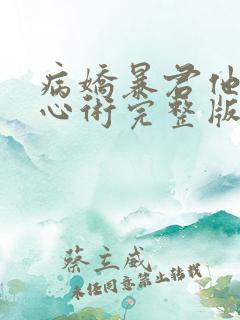 病嬌暴君他
心術完整版
蔡立威
未经同意禁止转载